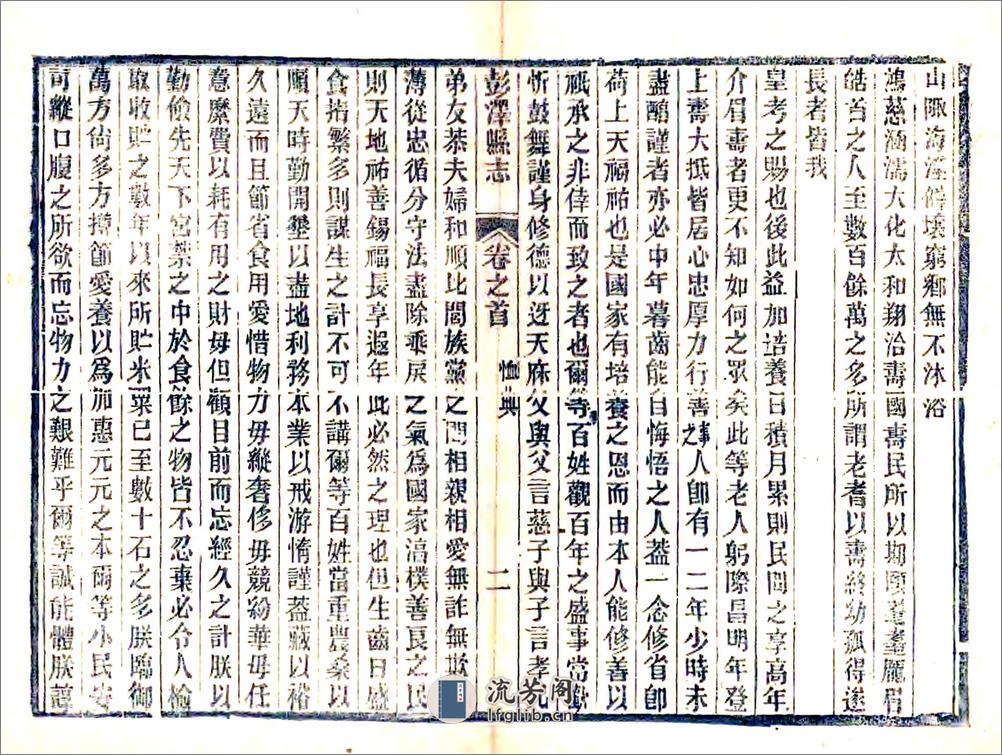 山陬海澨僻壤窮鄉無不沐浴
鴻慈涵濡大化太和翔洽壽國壽民所以期頤耄耋龐眉
皓首之人至數百餘萬之多所謂老耆以壽終幼孤得遂
長者皆我
皇考之賜也後此益加培養日積月累則民間之享高年
介眉壽者更不知如何之眾矣此等老人躬際昌明年登
上壽大抵皆居心忠厚力行善事之人卽有一二年少時未
盡醕謹者亦必中年暮齒能自悔悟之人葢一念修省卽
荷上天福祐也是國家有培養之恩而由本人能修善以
祇承之非倖而致之者也爾等百姓觀百年之盛事當歡
忻鼓舞謹身修德以迓天庥父與父言慈子與子言孝兄
彭澤縣志 卷之首 恤典 二
弟友恭夫婦和順比閭族黨之間相親相愛無詐無欺
薄從忠循分守法盡除乖戾之氣為國家淳樸善良之民
則天地祐善錫福長享遐年此必然之理也但生齒日盛
食指繁多則謀生之計不可不講爾等百姓當重農桑以
順天時勤開墾以盡地利務本業以戒游惰謹葢藏以裕
久遠而且節省食用愛惜物力毋縱奢侈毋競紛華毋任
意糜費以耗有用之財毋但顧目前而忘經久之計朕以
勤儉先天下宮禁之中於食餘之物皆不忍棄必令人檢
取收貯之數年以來所貯米粟已至數十石之多朕臨御
萬方尚多方撙節愛養以為加惠元元之本爾等小民安
可縱口腹之所欲而忘物力之艱難乎爾等誠能體朕
流芳閣
lfglib.cn